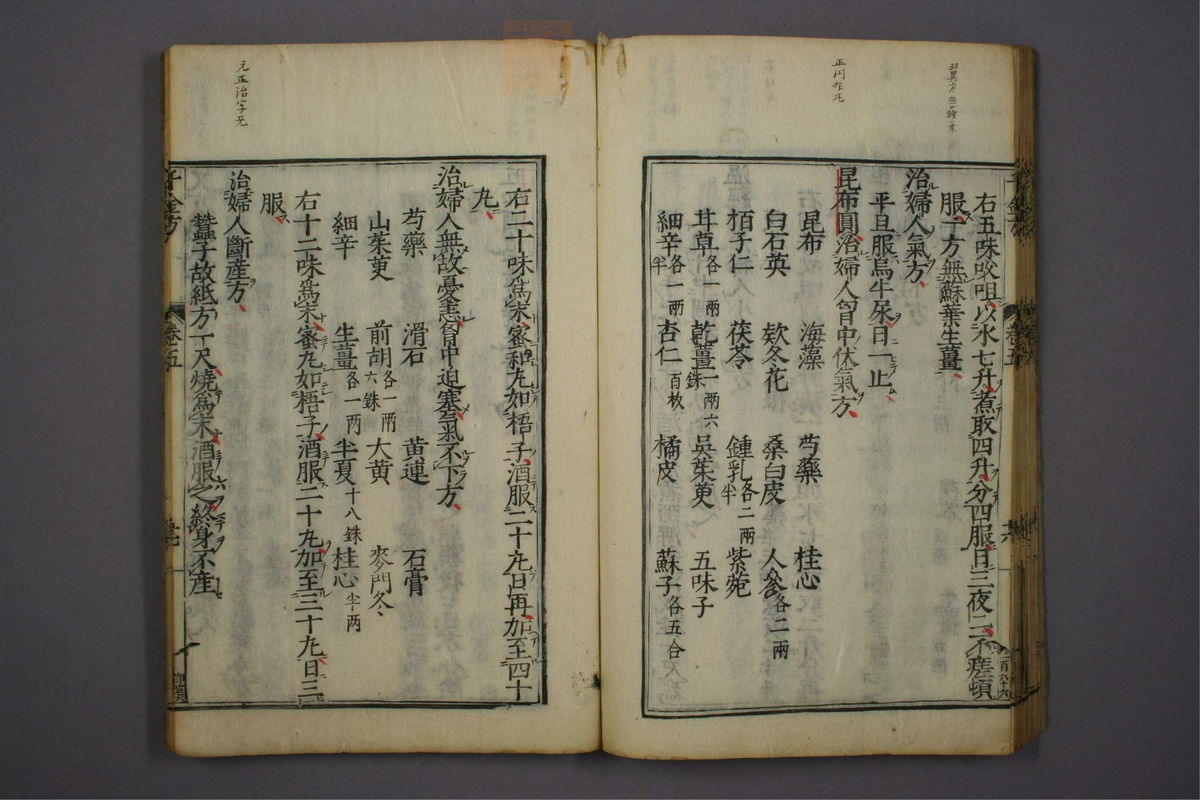 正円作丸
右五味㕮咀以水七升煮取四升分四服日三夜二不瘥頓
服一方無蘇葉生薑
治婦人氣方
平旦服烏牛尿日一止
昆布圓治婦人胷中伏氣方
昆布 海藻 芍藥 桂心
白石英 欵冬花 桑白皮 人參各二兩
栢子仁 茯苓 鍾乳各二兩半 紫菀
甘草各一兩 乾薑一兩六銖 吳茱萸 五味子
細辛各一兩半 杏仁百枚 橘皮 蘇子各五合
卷五
元正治字无
右二十味爲末蜜和丸如梧子酒服二十丸日再加至四十
丸
治婦人無故憂恚胷中迫塞氣不下方
芍藥 滑石 黃連 石膏
山茱萸 前胡各一兩六銖 大黃 麥門冬
細辛 生薑各一兩 半夏十八銖 桂心半兩
右十二味爲末蜜丸如梧子酒服二十丸加至三十丸日三
服
治婦人斷産方
蠶子故紙方一尺燒爲末酒服之終身不産
卷五